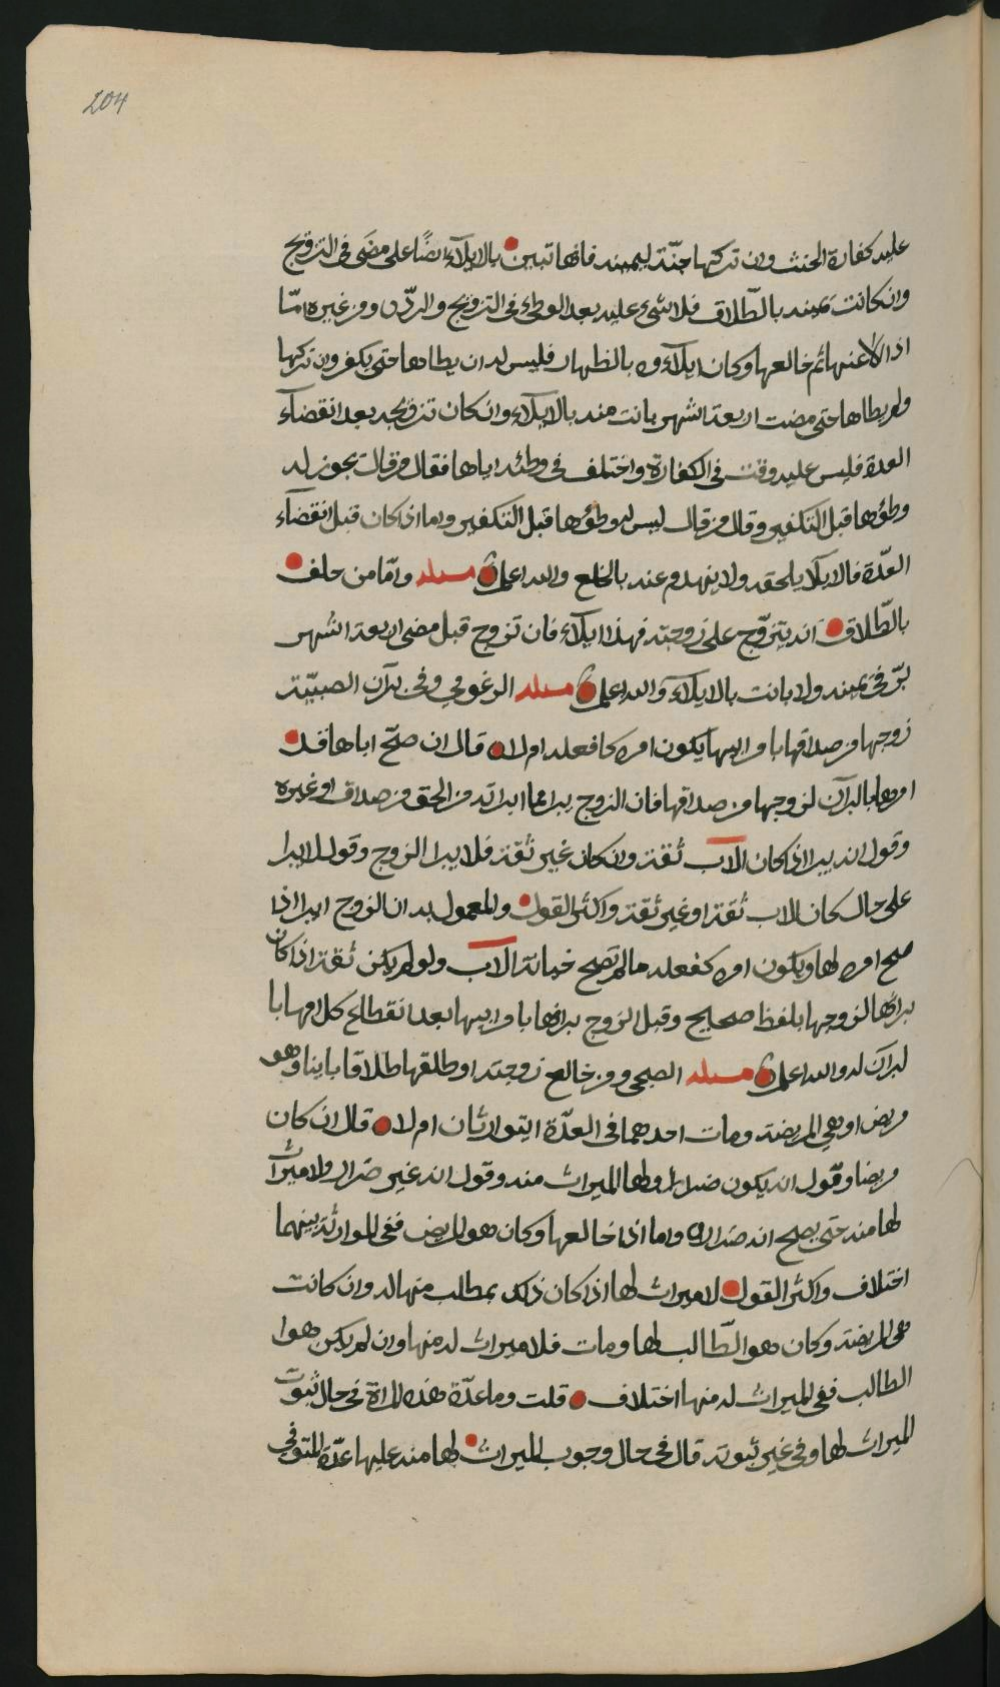 204
عليه كفارة الحنث وان تركها جنّة ليمينه فانها تبين بالايلآء ايضًا على مضَى فى التزويج
وان كانت يمينه بالطّلاق فلا شىء عليه بعد الوطىء فى التزويج والردّ ومن غيره امّا
اذا الا عنها ثم خالعها وكان ايلآءوه بالظهار فليس له ان يطاها حتى يكفر وان تركها
ولم يطاها حتى مضت اربعة اشهر بانت منه بالايلآء وان كان تزويجه بعد انقضآء
العدة فليس عليه وقت فى الكفارة واختلف فى وطئه اياها فقال من قال يجوز له
وطؤها قبل التكفير وقال من قال ليس له وطؤها قبل التكفير واما اذا كان قبل انقضآء
العدّة فالايلآ يلحقه ولا ينهدم عنه بالخلع والله اعلم مسئله وامّا من حلف
بالطّلاق انه يتزوّج على زوجته فهذا ايلآء فان تزوج قبل مضى اربعة اشهر
برّ فى يمينه ولا بانت بالايلآء والله اعلم مسئله الرغومي وفى برآن الصبيّة
زوجها من صداقها بامر ابيها يكون امره كافعله ام لا قال ان صحّ اباها قد
امرها بالبرآن لزوجها من صداقها فان الزوج يبرا مما ابراته من الحق من صداق او غيره
وقول انه يبرا اذا كان الاب ثقة وان كان غير ثقة فلا يبرا الزوج وقول لا يبرا
على حال كان الاب ثقة او غير ثقة واكثر القول والمعمول به ان الزوج ايبرا اذا
صح امره لها ويكون امره كفعله ما لم تصح خيانة الاب ولو لم يكن ثقة اذا كان
برأتها لزوجها بلفظ صحايح وقبل الزوج برانها بامر ابيها بعد انقطاع كلامها با
لبرآن له والله اعلم مسئله الصبحى ومن خالع زوجته او طلقها طلاقا باينا وهو
مريض او هي المريضة ومات احدهما فى العدّة ايتوارثان ام لا قال ان كان
مريضا وقّول انه يكون ضرارا ولها الميراث منه وقول انه غير ضرار ولا ميراث
لها منه حتى يصح انه ضرار واما اذا خالعها وكان هو المريض ففى الموارثة بينهما
اختلاف واكثر القول لا ميراث لها اذا كان ذلك بمطلب منها له وان كانت
هى المريضة وكان هو الطّالب لها ومات فلا ميراث له منها وان لم يكن هوا
الطالب ففى الميراث له منها اختلاف قلت وما عدّة هذه المراة فى حال ثبوت
الميراث لها وفى غير ثبوته قال فى حال وجوب الميراث لها منه عليها عدّة المتوفي